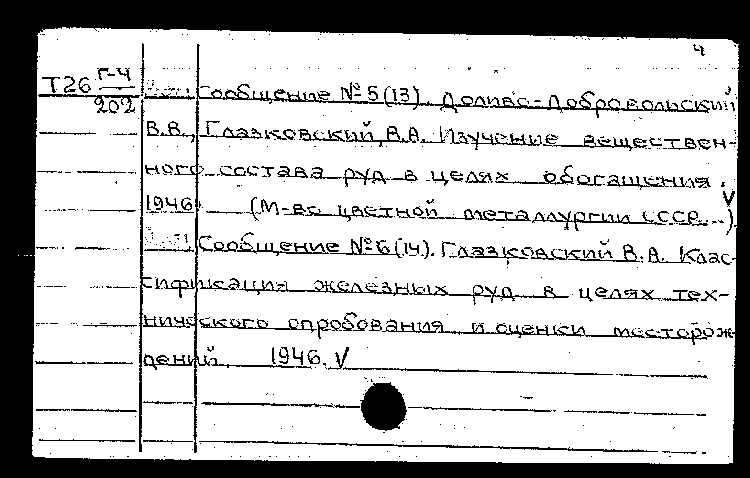 4
Т26 Г-4
202
Сообщение №5(13). Доливо-Добровольский
В.В., Глазковский, В.А. Изучение веществен-
ного состава руд в целях обогащения.
1946. (М-во цветной металлургии СССР...) V
Сообщение №6(14). Глазковский В.А. Клас-
сификация железных руд в целях тех-
нического опробования и оценки месторож-
дений. 1946. V